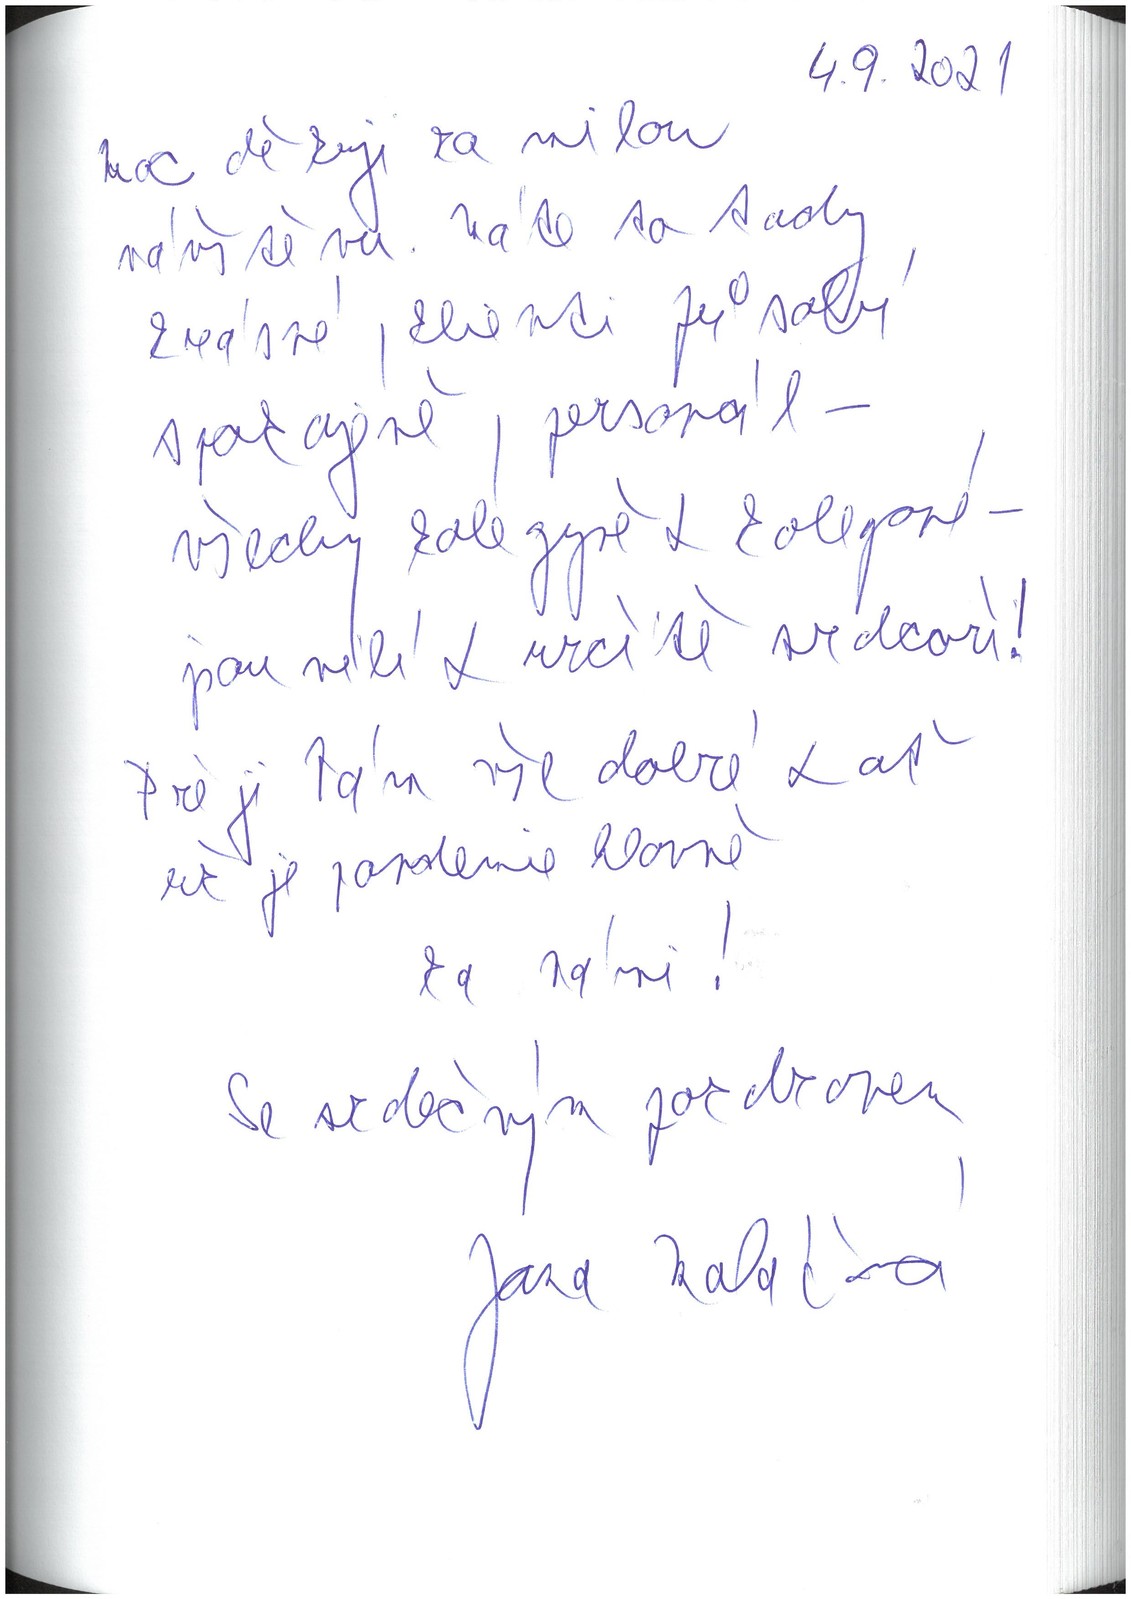 4.9.2021
Moc děkuji za milou
návštěvu. Máte to tady
krásné, klienti působí
spokojeně, personál –
všechny kolegyně & kolegové –
jsou milí & určitě srdcaři!
Přeji Vám vše dobré & ať
už je pandemie hlavně
za námi!
Se srdečným pozdravem
Jana